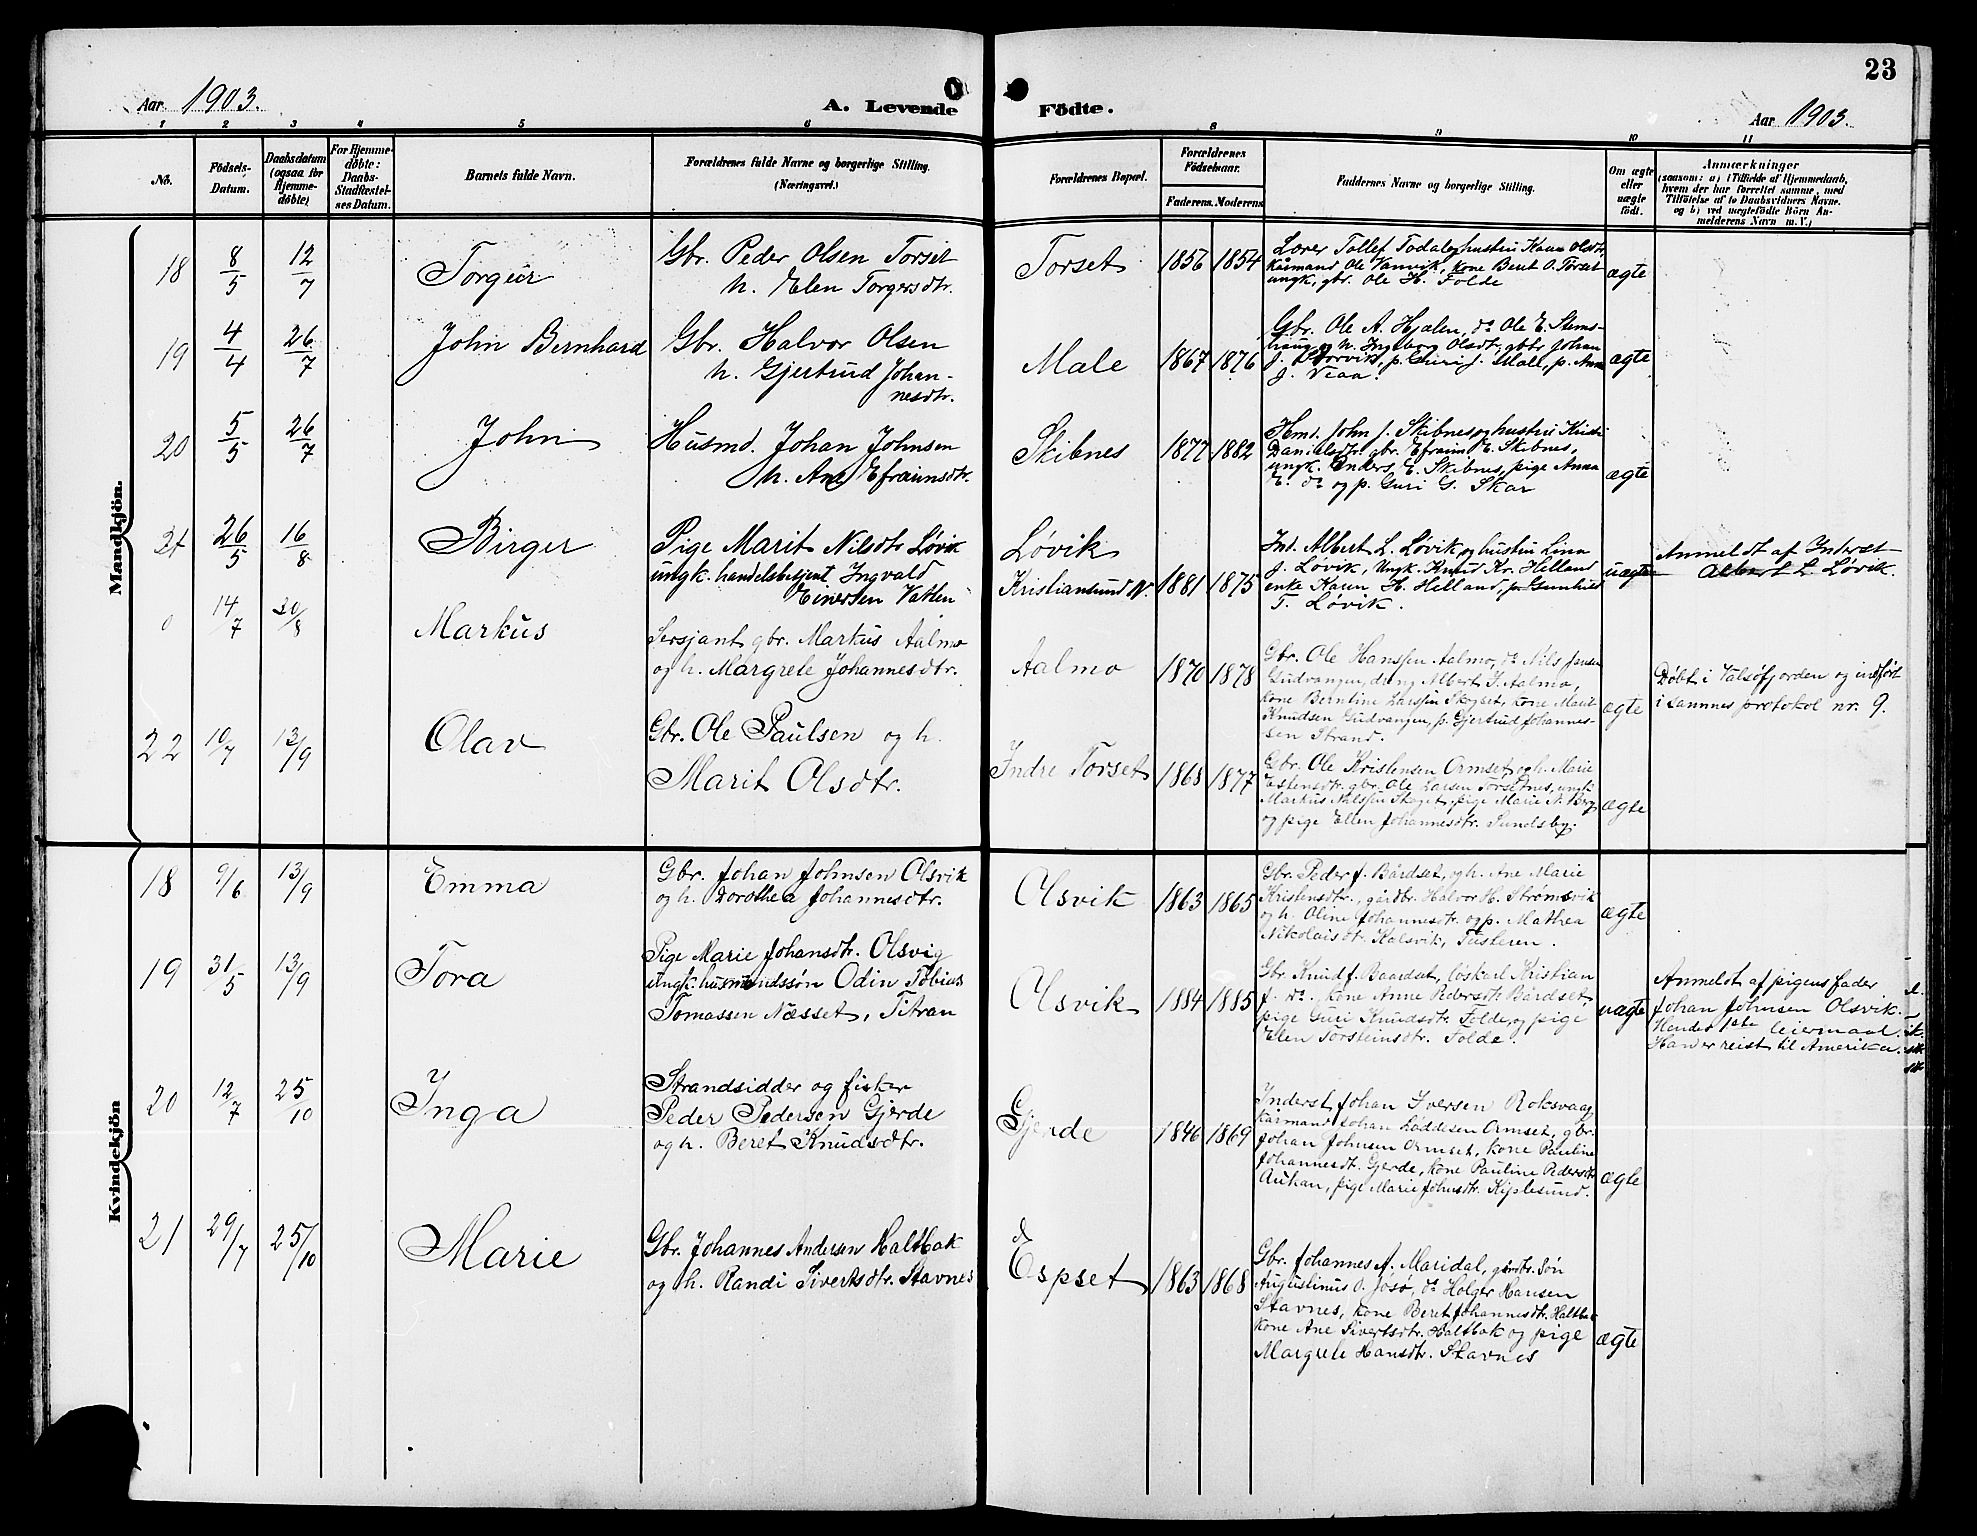 23
Aar 1903.
A. Levende Födte.
Aar 1903.
1 2 3 4 5 6 8 9 10 11
No.
Födsels-Datum.
Daabsdatum (ogsaa for Hjemme-döbte)
For Hjemme-döbte: Daabs-Stadfæstel-ses Datum.
Barnets fulde Navn.
Forældrenes fulde Navne og borgerlige Stilling. (Næringsvei.)
Forældrenes Bopæl.
Forældrenes Födselsaar.
Faderens. Moderens
Faddernes Navne og borgerlige Stilling.
Om ægte eller uægte födt.
Anmærkninger
(saasom: a) i Tilfælde af Hjemmedaab, hvem der har forrettet samme, med Tilföielse af to Daabsvidners Navne, og b) ved uægtefödte Börn An-melderens Navn m. V.)
Mandkjön.
18 8/5 12/7 Torgeir
Gbr. Peder Olsen Torset
h. Elen Torgersdtr.
Torset 1856 1854
Lærer Tollef Todal og hustru Karen Olsdtr,
Kårmand Ole Vanvik, kone Beret O. Torset
ungk, gbr. Ole H. Folde
ægte
19 4/4 26/7 John Bernhard
Gbr. Halvor Olsen
h. Gjertrud Johan-
nesdtr.
Male 1867 1876
Gbr. Ole A. Hjælen, do Ole E. Stems-
haug og h. Ingeborg Olsdt, gbr Johan
J. Storvik, p. Guri J. Male, p. Anne
J. Veaa.
ægte
20 5/5 26/7 John
Husmd. Johan Johnsen
h. Ane Efraimsdtr.
Skibnes 1877 1882
Hmd. John J. Skibnes og hustru Kirsti
Danielsdtr. gbr. Efraim E. Skibnes,
ungk. Anders E. Skibnes, pige Anna
E. do og p. Guri G. Skar
ægte
21 26/5 16/8 Birger
Pige Marit Nilsdtr Løvik
ungk. handelsbetjent Ingvald
Einersen Vatten
Løvik
Kristiansund N. 1881 1875
Ind. Albert L. Løvik og hustru Lina
J. Løvik, Ungk. Knud Kr. Helland
enke Karen H. Helland, p. Gunhild
T. Løvik.
uægte
Anmeldt af Inderst
Albert L. Løvik.
0 14/7 30/8 Markus
Sersjant, gbr. Markus Aalmo
og h. Margrete Johannesdtr.
Aalmo 1870 1878
Gbr. Ole Hanssen Aalmo, do Nils Jansen
Gudvangen, dreng Albert I. Aalmo,
kone Berntine Larssen Skoget, kone Marit
Knudsen Gudvangen, p. Gjertrud Johannes-
sen Strand.
ægte
Døbt i Valsøfjorden og indført
i sammes protokol nr. 9.
22 10/7 13/9 Olav
Gbr. Ole Paulsen og h.
Marit Olsdtr.
Indre Torset 1868 1877
Gbr. Ole Kristensen Ormset og h. Marie
Estensdtr. gbr. Ole Larsen Torsetnes, ungk.
Markus Nilssen Skoget, pige Marie N. Berg
og pige Ellen Johannesdtr. Sundsby.
ægte
Kvindekjön
18 9/6 13/9 Emma
Gbr. Johan Johnsen Olsvik
og h. Dorothea Johannesdtr.
Olsvik 1863 1865
Gbr. Peder J. Bårdset, og h. Ane Marie
Kristensdtr., gårdbr. Halvor H. Strømsvik
og h. Oline Johannesdtr. og p. Mathea
Nikolaisdtr. Kalsvik, Tusteren.
ægte
19 31/5 13/9 Tora
Pige Marie Johansdtr. Olsvig
ungk. husmandssøn Odin Tobias
Tomassen Næsset, Titran
Olsvik 1884 1885
Gbr. Knud J. Baardset, løskarl Kristian
J. do., kone Anne Pedersdtr. Bårdset,
pige Guri Knudsdtr. Folde, og pige
Elen Torsteinsdtr. Folde.
uægte
Anmeldt af pigens fader
Johan Johnsen Olsvik.
Hendes 1ste leiermaal.
Han er reist til Amerika.
20 12/7 25/10 Inga
Strandsidder og fisker
Peder Pedersen Gjerde
og h. Beret Knudsdtr.
Gjerde 1846 1869
Inderst Johan Iversen Roksvaag
kårmand Johan Loddesen Ormset, gbr.
Johan Johnsen Ormset, kone Pauline
Johannesdt. Gjerde, kone Pauline Pedersdtr
Aukan, pige Marie Johnsdtr. Kiplesund.
ægte
21 29/7 25/10 Marie
Gbr. Johannes Andersen Haltbak
og h. Randi Sivertsdtr. Stavnes
Espset 1863 1868
Gbr. Johannes A. Maridal, gårdbr. søn
Augustinus O. Jøsø, do Holger Hansen
Stavnes, kone Beret Johannesdtr. Haltbak
kone Ane Sivertsdtr. Haltbak og pige
Margrete Hansdtr. Stavnes
ægte